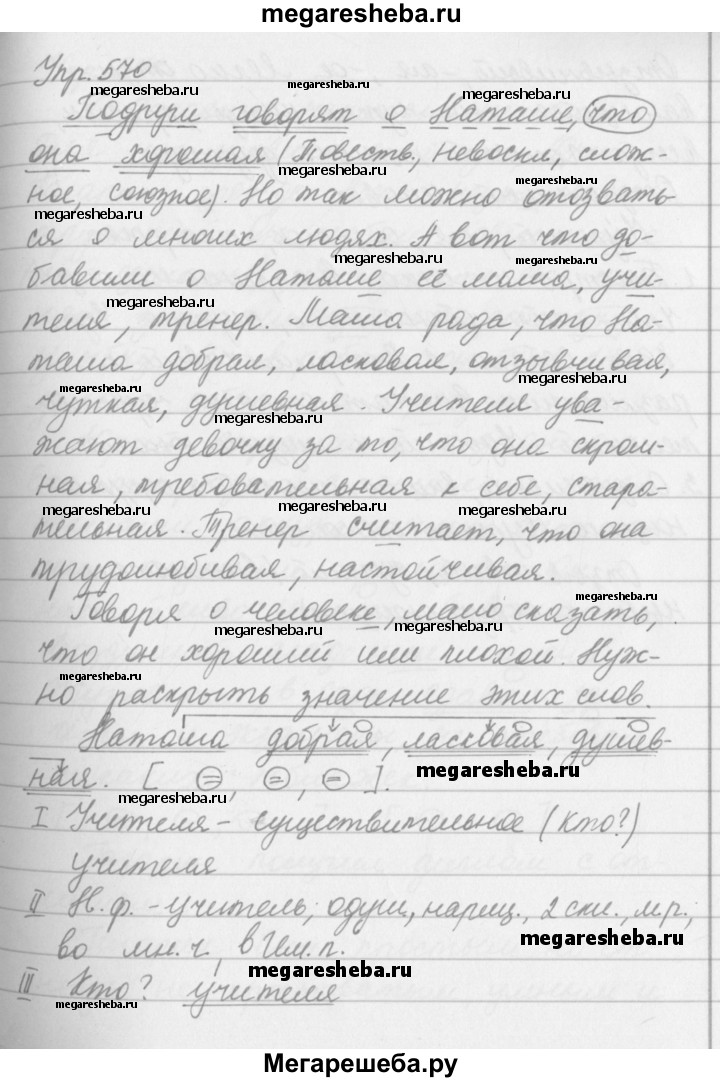 megaresheba.ru
Упр. 570
megaresheba.ru
megaresheba.ru
Подруги говорят о Наташе, что
она хорошая (Повеств., невоскл, слож-
megaresheba.ru
megaresheba.ru
ное, союзное). Но так можно отозвать-
megaresheba.ru
ся о многих людях. А вот что до-
megaresheba.ru
бавили о Наташе её мама, учи-
megaresheba.ru
megaresheba.ru
теля, тренер. Мама рада, что На-
таша добрая, ласковая, отзывчивая,
megaresheba.ru
megaresheba.ru
чуткая, душевная. Учителя ува-
megaresheba.ru
жают девочку за то, что она скром-
ная, требовательная к себе, стара-
megaresheba.ru
megaresheba.ru
тельная. Тренер считает, что она
трудолюбивая, настойчивая.
megaresheba.ru
Говоря о человеке, мало сказать,
megaresheba.ru
megaresheba.ru
что он хороший или плохой. Нуж-
но раскрыть значение этих слов.
Наташа добрая, ласковая, душев-
ная. [ =, =, = ].
megaresheba.ru
megaresheba.ru
I Учителя - существительное (кто?)
учителя
II Н.ф. - учитель, одуш, нариц., 2 скл., м.р.,
во мн.ч, в Им.п.
megaresheba.ru
megaresheba.ru
III Кто? учителя
megaresheba.ru
Мегарешеба.ру